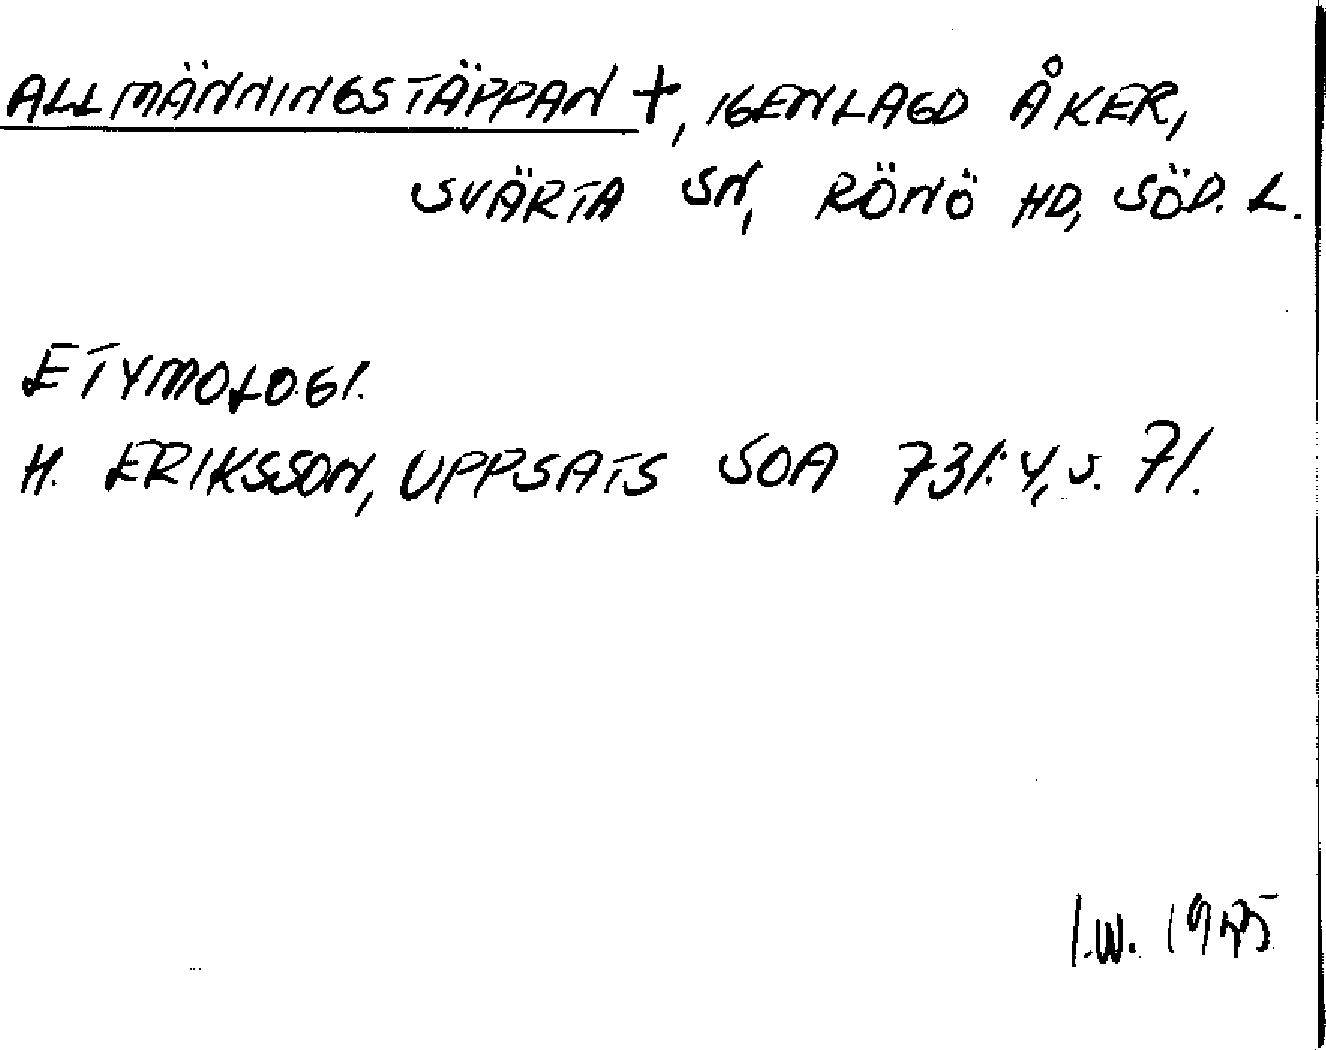 ALLMÄNNINGSTÄPPAN +, IGENLAGD ÅKER,
SVÄRTA SN, RÖNÖ HD, SÖD. L.
ETYMOLOGI.
H. ERIKSSON, UPPSATS SOA 731:4, s. 71.
I.W. 1975